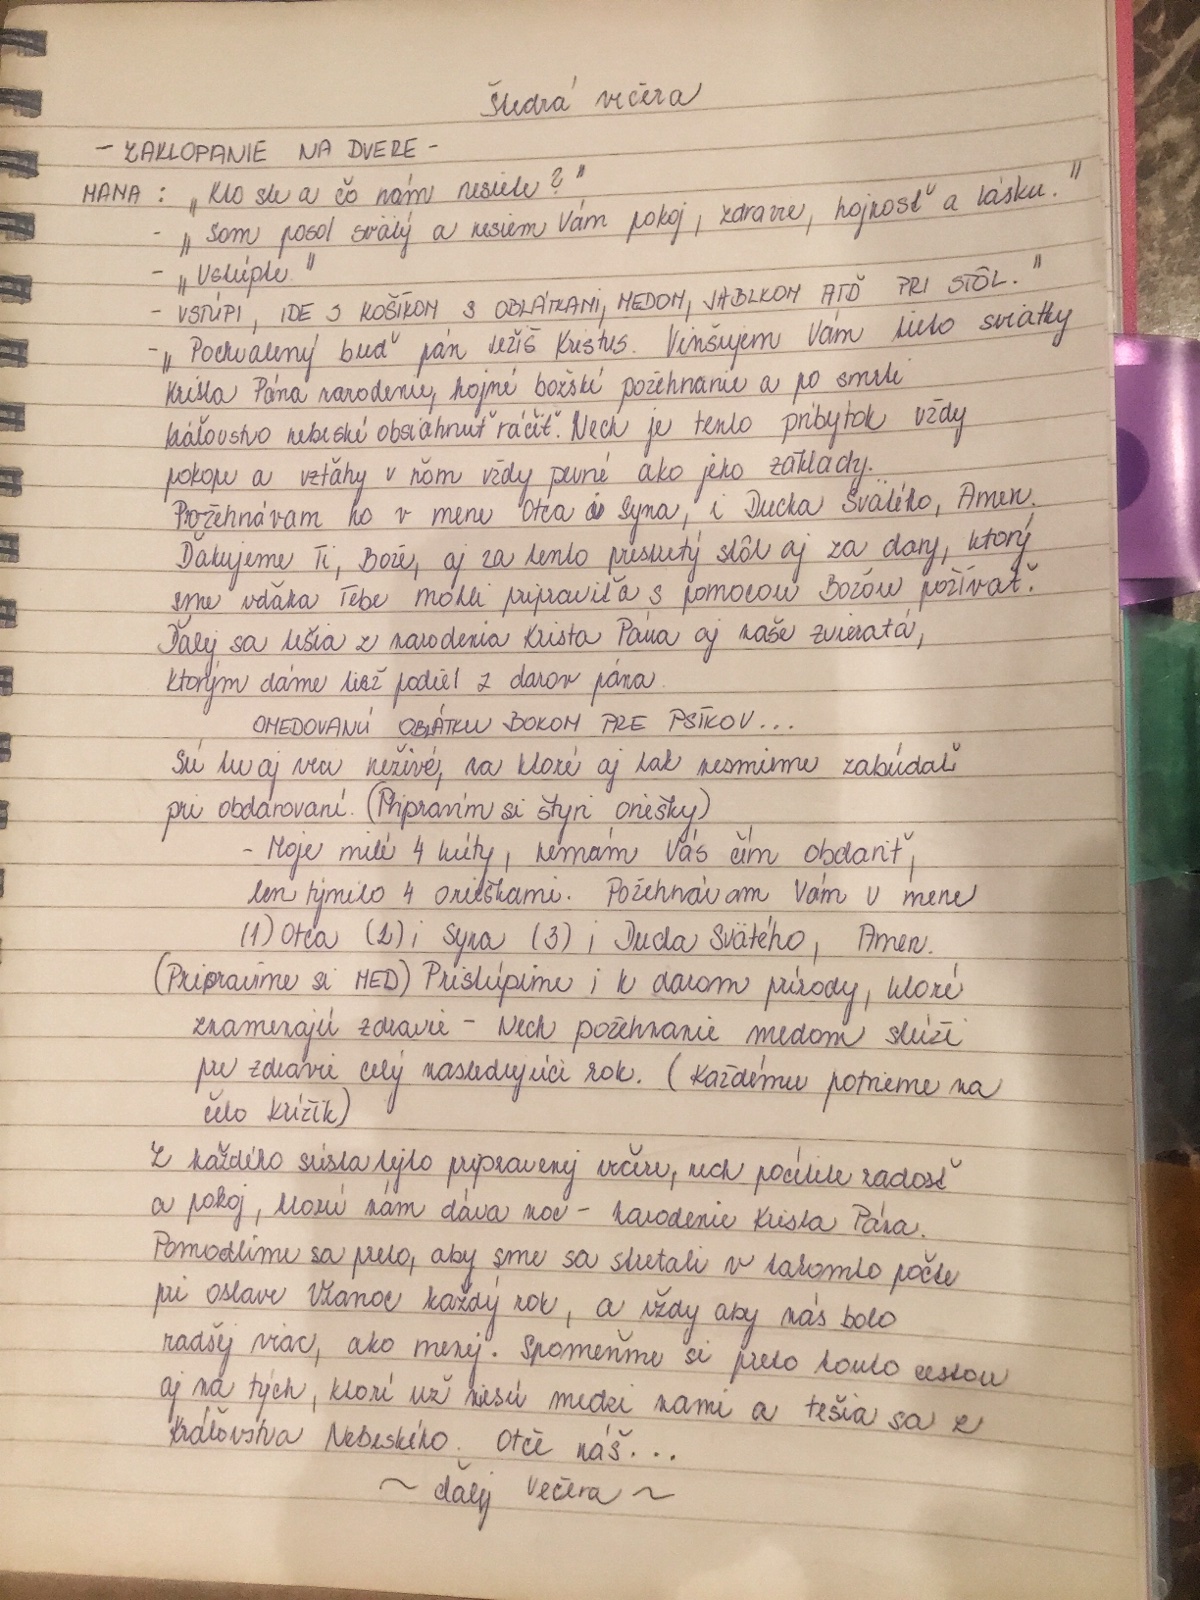 Štedrá večera
- ZAKLOPANIE NA DVERE -
MAMA : „Kto ste a čo nám nesiete?"
- „Som posol svätý a nesiem Vám pokoj, zdravie, hojnosť a lásku."
- „Vstúpte."
- VSTÚPI, IDE S KOŠÍKOM S OBLÁTKAMI, MEDOM, JABLKOM ATĎ PRI STÔL."
- „Pochválený buď pán Ježiš Kristus. Vinšujem Vám tieto sviatky
Krista Pána narodenie, hojné božské požehnanie a po smrti
kráľovstvo nebeské obsiahnuť ráčiť. Nech je tento príbytok vždy
pokope a vzťahy v ňom vždy pevné ako jeho základy.
Požehnávam ho v mene Otca i Syna, i Ducha Svätého, Amen.
Ďakujeme Ti, Bože, aj za tento prestretý stôl aj za dary, ktorý
sme vďaka Tebe mohli pripraviť a s pomocou Božou požívať.
Ďalej sa tešia z narodenia Krista Pána aj naše zvieratá,
ktorým dáme tiež podiel z darov pána.
OMEDOVANÚ OBLÁTKU BOKOM PRE PSÍKOV...
Sú tu aj veci neživé, na ktoré aj tak nesmieme zabúdať
pri obdarovaní. (Pripravím si štyri oriešky)
- Moje milé 4 kúty, nemám Vás čím obdariť,
len týmito 4 orieškami. Požehnávam Vám v mene
(1) Otca (2) i Syna (3) i Ducha Svätého, Amen.
(Pripravíme si MED) Pristúpime i k darom prírody, ktoré
znamenajú zdravie - Nech požehnanie medom slúži
pre zdravie celý nasledujúci rok. (Každému potrieme na
čelo krížik)
Z každého sústa tejto pripravenej večere, nech pocítite radosť
a pokoj, ktorú nám dáva noc - narodenie Krista Pána.
Pomodlíme sa preto, aby sme sa stretali v takomto počte
pri oslave Vianoc každý rok, a vždy aby nás bolo
radšej viac, ako menej. Spomeňme si preto touto cestou
aj na tých, ktorí už niesú medzi nami a tešia sa z
Kráľovstva Nebeského. Otče náš...
~ ďalej Večera ~